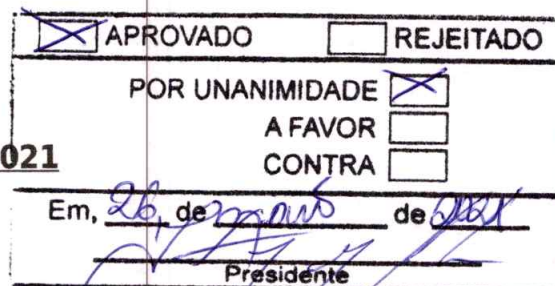 APROVADO REJEITADO
POR UNANIMIDADE
A FAVOR
021
CONTRA
Em, 26, de de 2021
Presidente